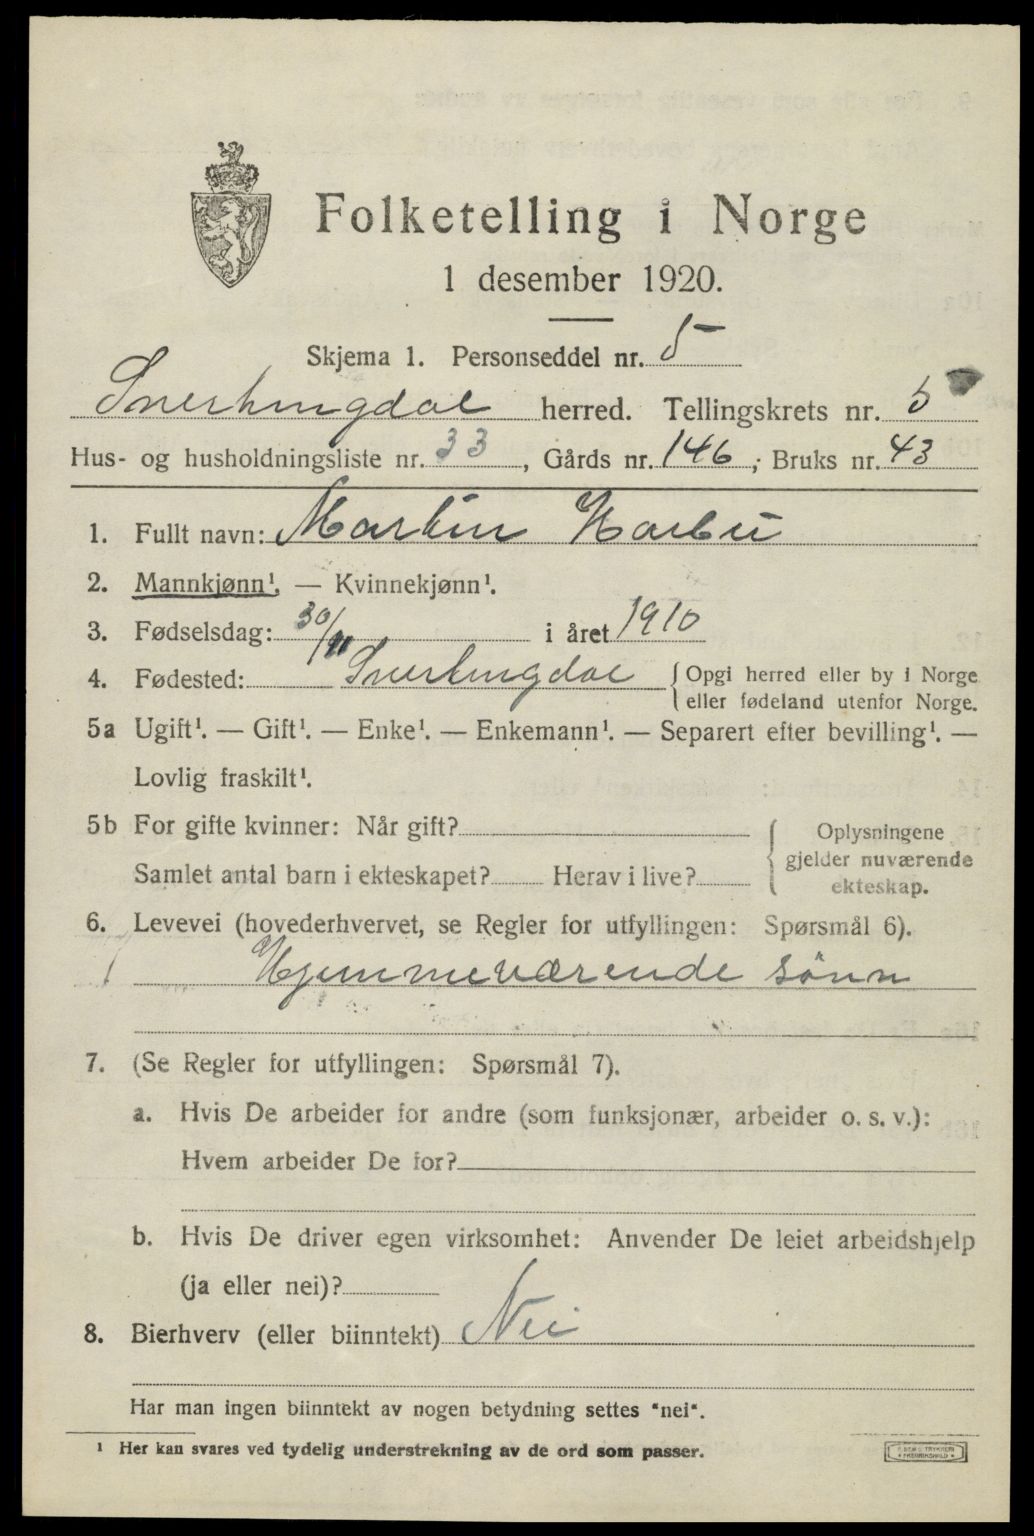 Folketelling i Norge
1 desember 1920.
Skjema 1. Personseddel nr. 5
Snertingdal herred. Tellingskrets nr. 5
Hus- og husholdningsliste nr. 33, Gårds nr. 146; Bruks nr. 43
1. Fullt navn: Martin
2. Mannkjønn¹. — Kvinnekjønn¹.
3. Fødselsdag: 30/11 i året 1910
4. Fødested: Snertingdal { Opgi herred eller by i Norge
eller fødeland utenfor Norge.
5a Ugift¹. — Gift¹. — Enke¹. — Enkemann¹. — Separert efter bevilling¹. —
Lovlig fraskilt¹.
5b For gifte kvinner: Når gift?
Samlet antal barn i ekteskapet? Herav i live?
{ Oplysningene
gjelder nuværende
ekteskap.
6. Levevei (hovederhvervet, se Regler for utfyllingen: Spørsmål 6).
Hjemmeværende sönn
7. (Se Regler for utfyllingen: Spørsmål 7).
a. Hvis De arbeider for andre (som funksjonær, arbeider o. s. v.):
Hvem arbeider De for?
b. Hvis De driver egen virksomhet: Anvender De leiet arbeidshjelp
(ja eller nei)?
8. Bierhverv (eller biinntekt) Nei
Har man ingen biinntekt av nogen betydning settes "nei".
¹ Her kan svares ved tydelig understrekning av de ord som passer.